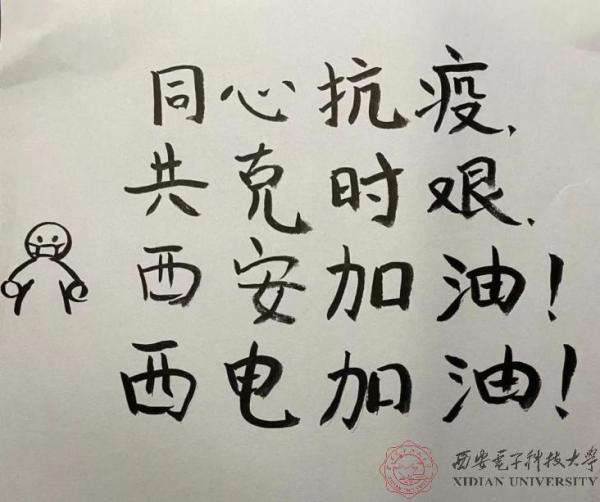 同心抗疫,
共克时艰,
西安加油!
西电加油!
西安电子科技大学
XIDIAN UNIVERSITY